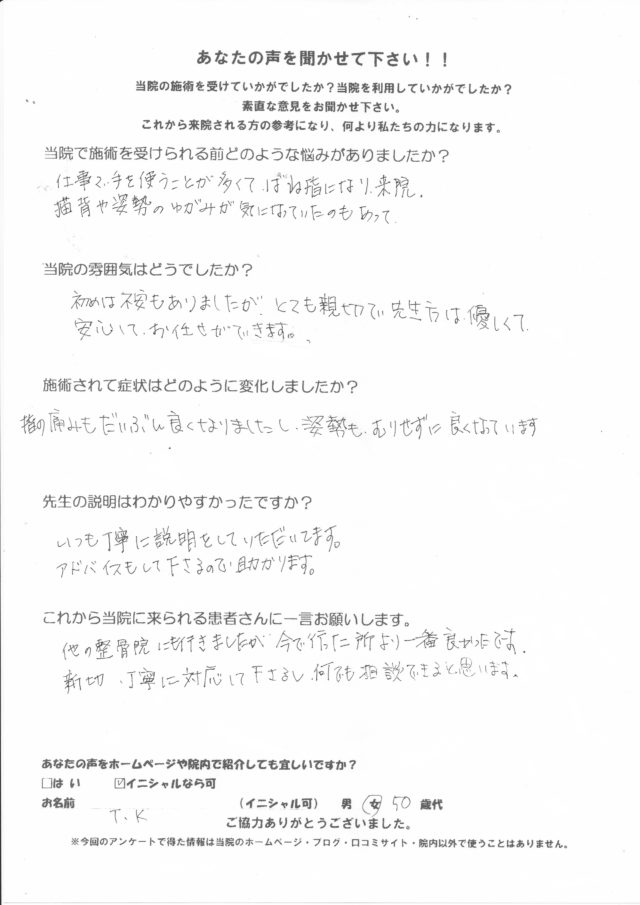 あなたの声を聞かせて下さい！！
当院の施術を受けていかがでしたか？当院を利用していかがでしたか？
素直な意見をお聞かせ下さい。
これから来院される方の参考になり、何より私たちの力になります。
当院で施術を受けられる前どのような悩みがありましたか？
仕事で、手を使うことが多くて、ばね指になり、来院、
猫背や姿勢のゆがみが気になっていたのもあって
当院の雰囲気はどうでしたか？
初めは不安もありましたが、とても親切で、先生方は、優しくて、
安心して、お任せができます。
施術されて症状はどのように変化しましたか？
指の痛みもだいぶん良くなりましたし、姿勢も、むりせずに良くなっています
先生の説明はわかりやすかったですか？
いつも丁寧に説明をしていただいてます。
アドバイスもして下さるので、助かります。
これから当院に来られる患者さんに一言お願いします。
他の整骨院にも行きましたが、今で行った所より一番良かったです。
新切、丁寧に対応して下さるし、何でも相談できると思います。
あなたの声をホームページや院内で紹介しても宜しいですか？
□はい ☑イニシャルなら可
お名前 T.K （イニシャル可） 男 女 50 歳代
ご協力ありがとうございました。
※今回のアンケートで得た情報は当院のホームページ・ブログ・口コミサイト・院内以外で使うことはありません。